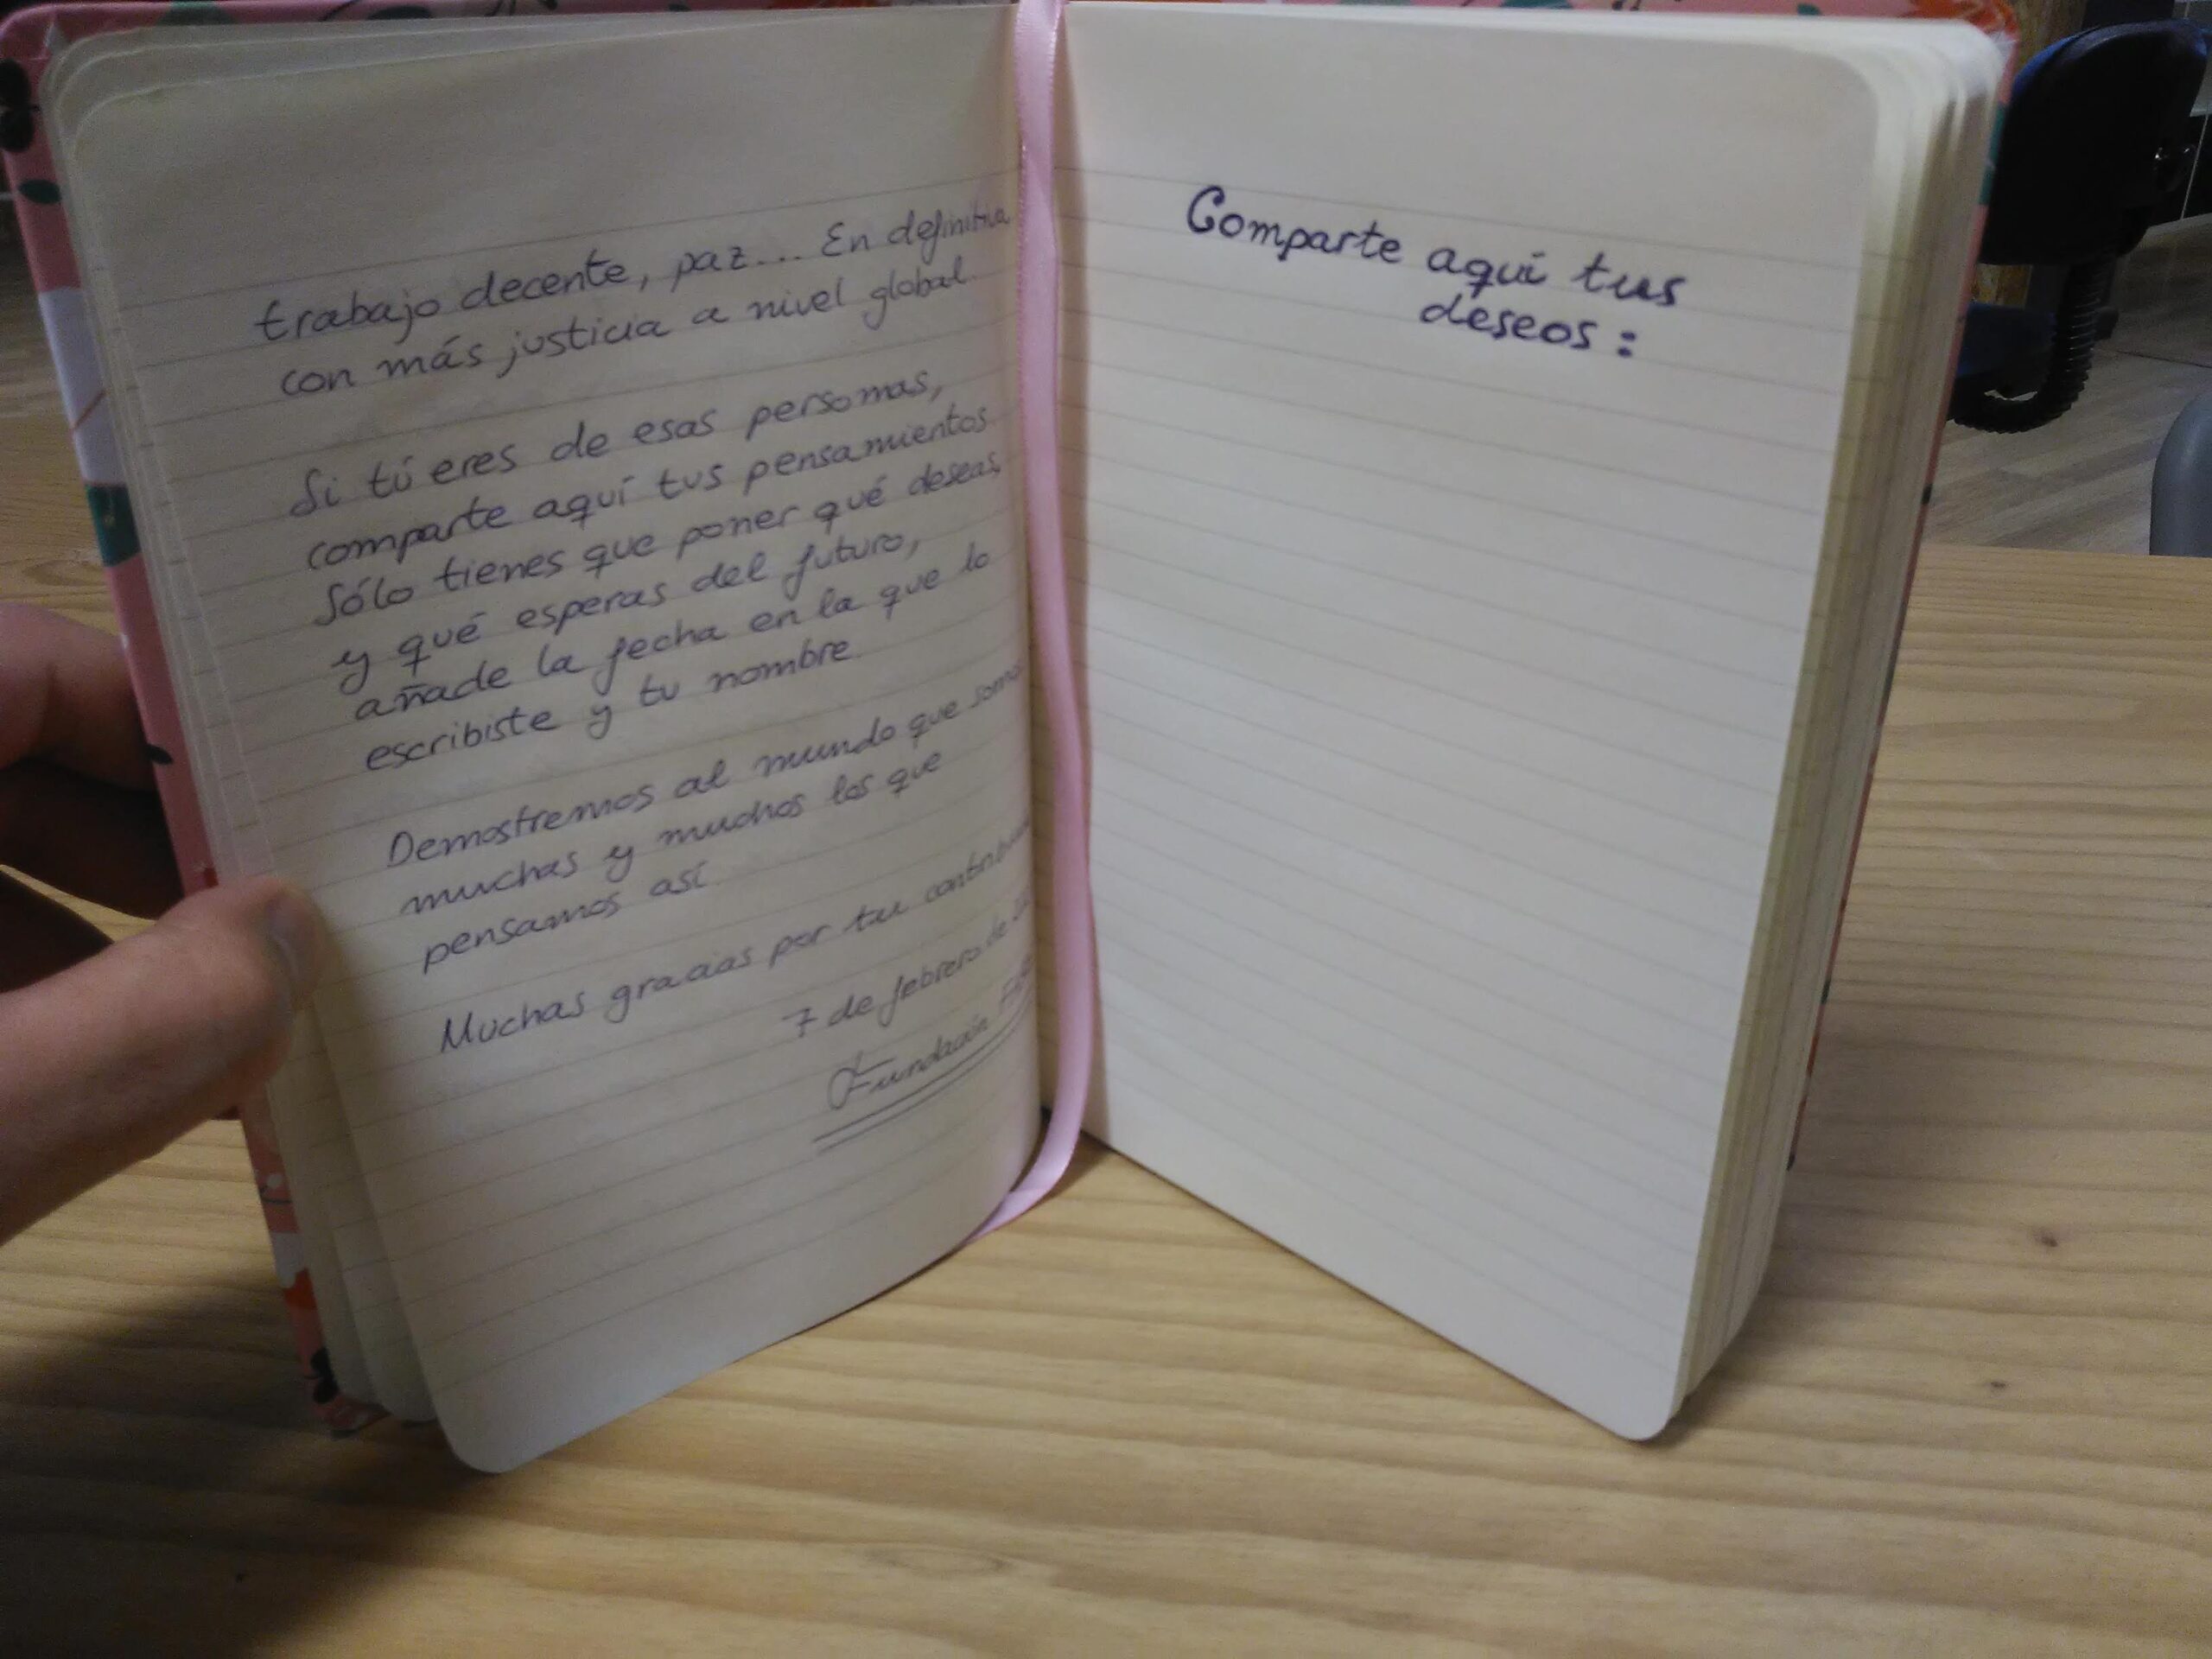 trabajo decente, paz... En definitiva
con más justicia a nivel global
Si tú eres de esas personas,
comparte aquí tus pensamientos.
Sólo tienes que poner qué deseas,
y qué esperas del futuro,
añade la fecha en la que lo
escribiste y tu nombre.
Demostremos al mundo que somo
muchas y muchos los que
pensamos así.
Muchas gracias por tu
7 de febrero de
Fundación
Comparte aquí tus
deseos: